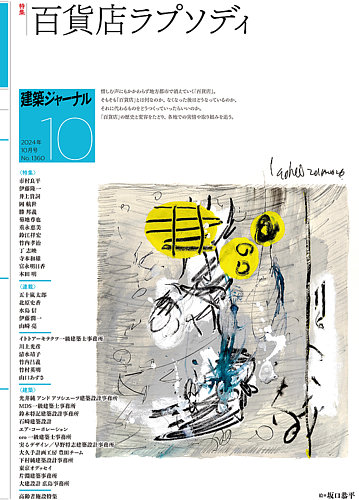 特集
百貨店ラプソディ
惜しむ声にもかかわらず地方都市で消えていく「百貨店」。
そもそも「百貨店」とは何なのか。なくなった後はどうなっているのか。
それに代わるものをどうつくっていったらいいのか。
「百貨店」の歴史と変容をたどり、各地での実情や取り組みを追う。
建築ジャーナル
2024年
10月号
No.1360
10
〈特集〉
市村良平
伊藤隆一
井上賀詞
岡 航世
勝 邦義
菊地尊也
重永恵美
鈴江祥宏
竹内孝治
丁 志映
寺本和雄
富永明日香
本田 明
〈連載〉
五十嵐太郎
北原史番
永島 信
伊藤寛一
山崎 亮
イトトアーキテクツ一級建築士事務所
川上光彦
清水靖子
竹内昌義
竹村英明
山口あずさ
〈建築〉
光井純アンドアソシエーツ建築設計事務所
MDS一級建築士事務所
鈴木特記建築設計事務所
石崎建築設計
エア・コーポレーション
oro一級建築士事務所
実るデザイン／早野将志建築設計事務所
大久手計画工房 豊田チーム
下村純建築設計事務所
東京オデッセイ
片翼建築事務所
大建設計 広島事務所
高齢者施設特集
絵＝坂口恭平